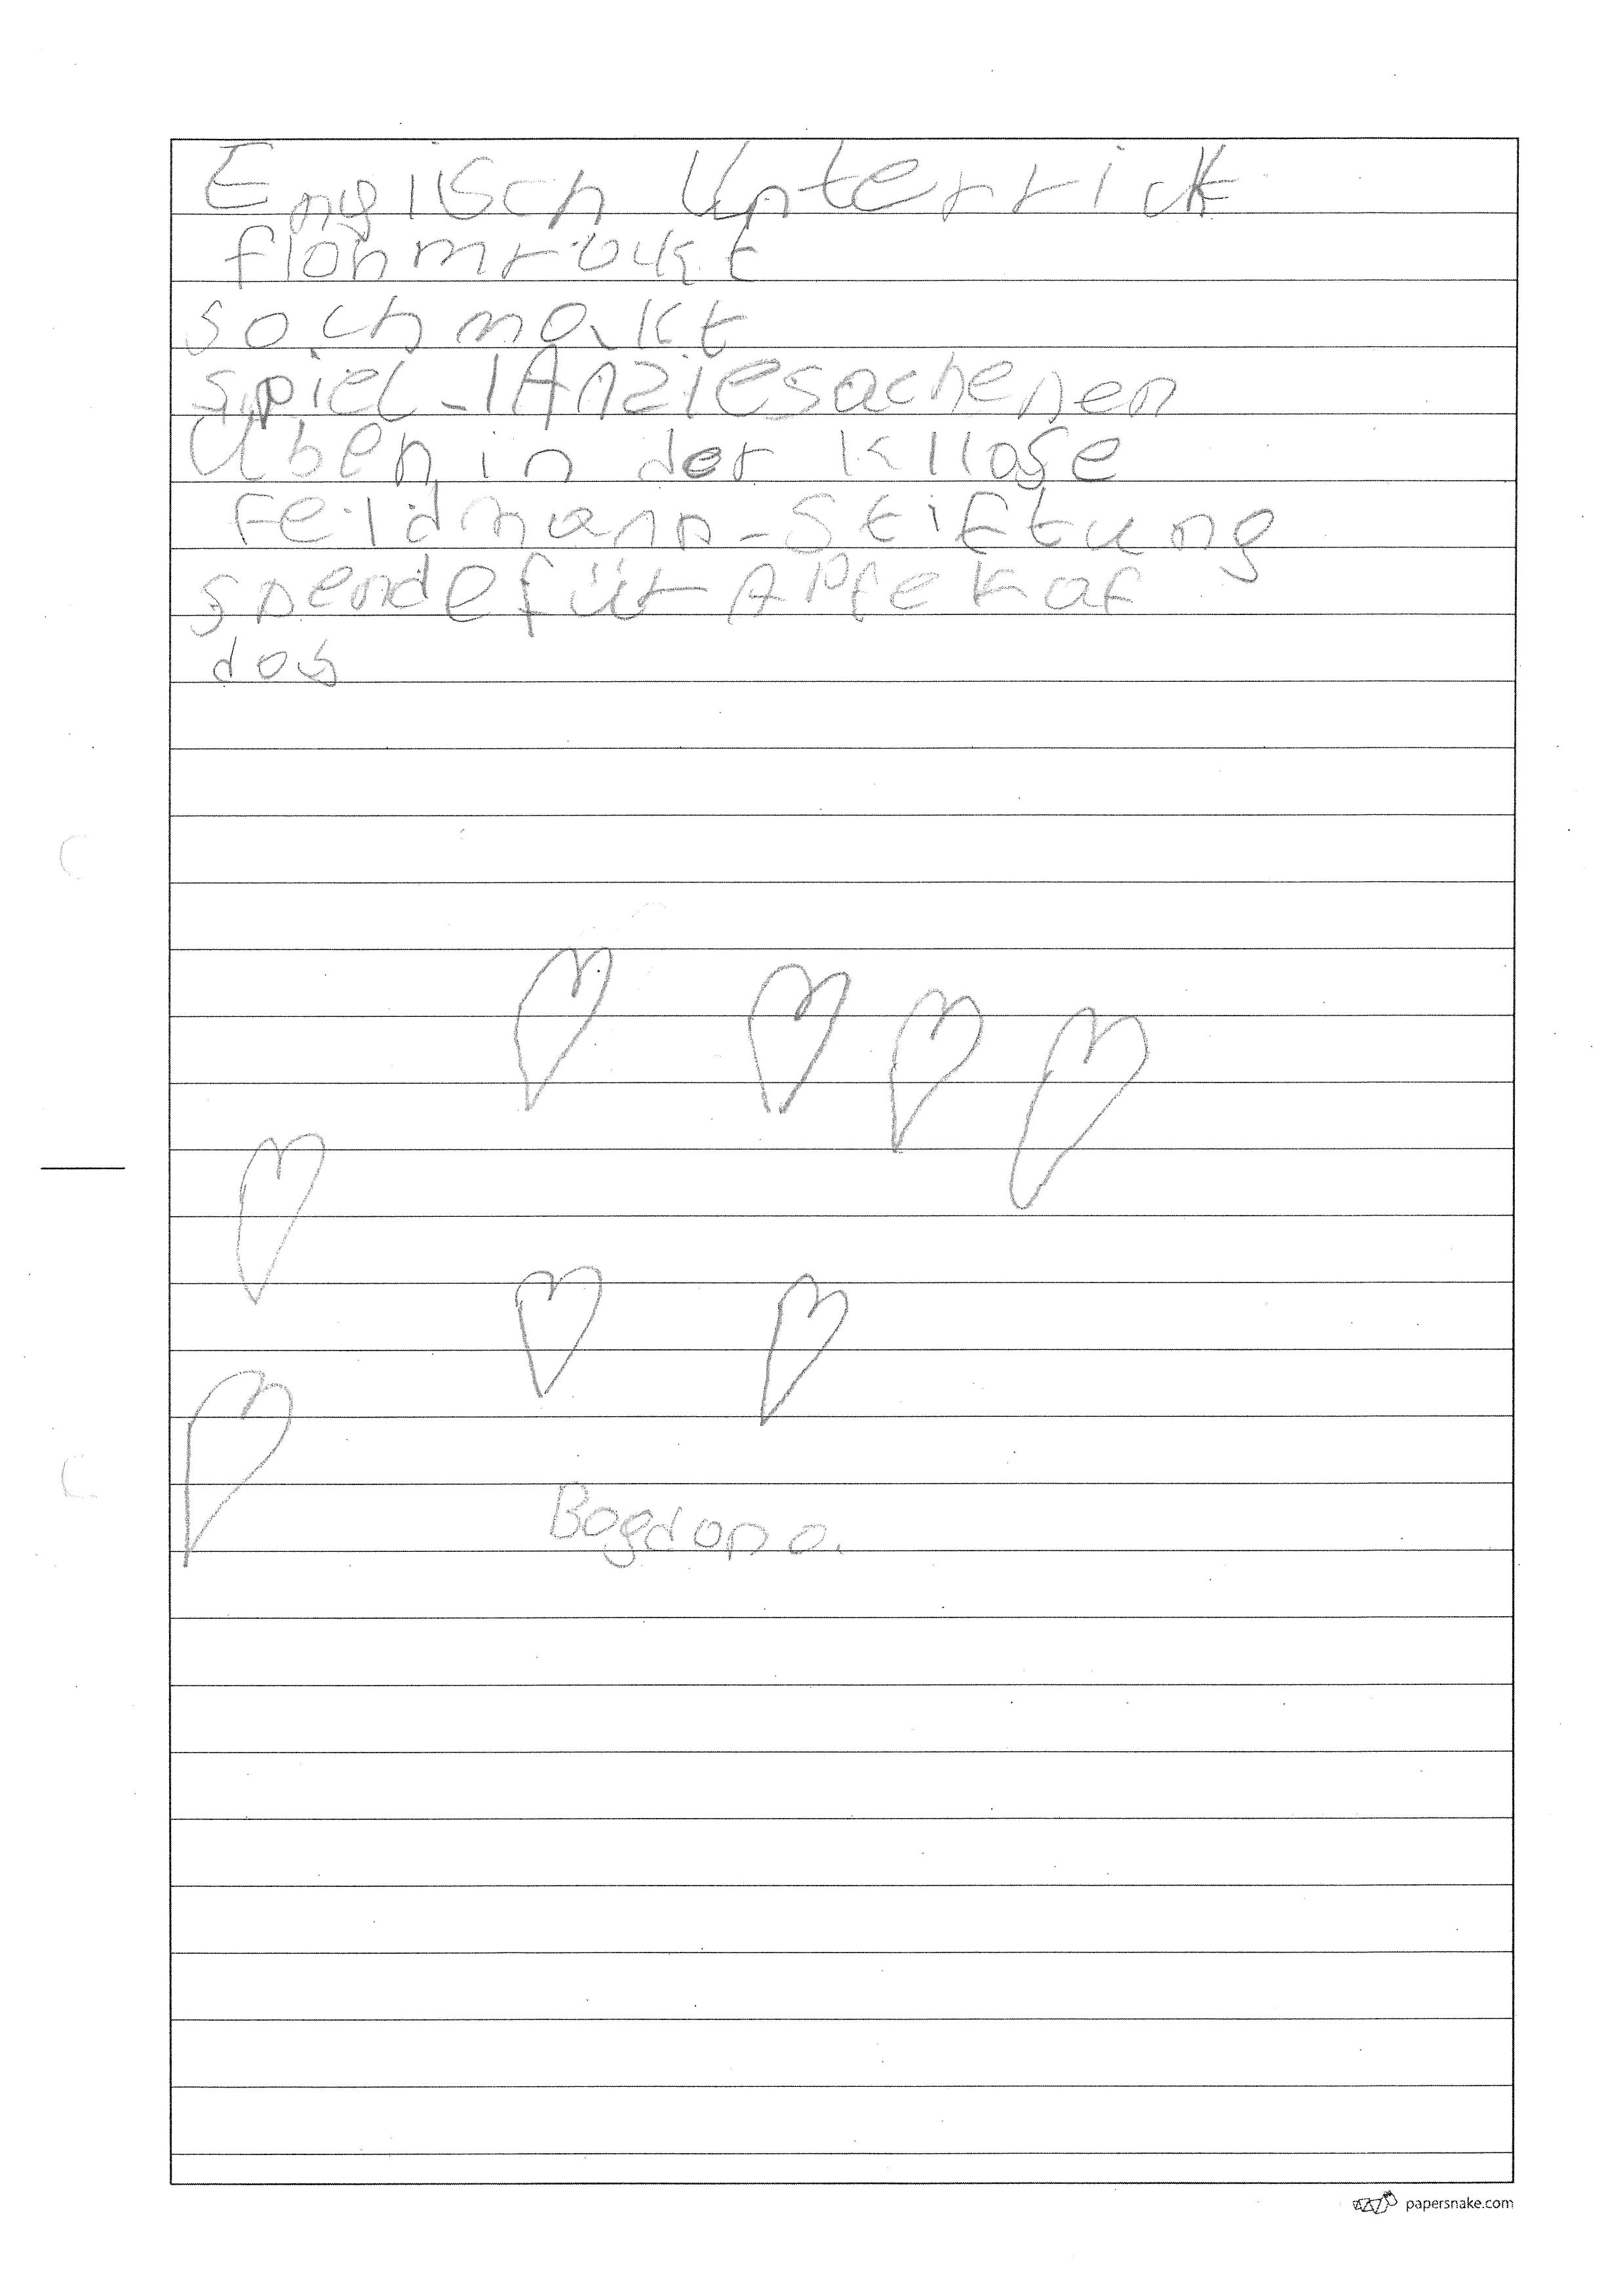 Englisch Unterrickt
flohmrokt
sochmakt
spiel-/Anziesachenen
Üben in der Kllase
Feildmann-Stiftung
spendefür APfekaf
dos
Bogdana.
papersnake.com